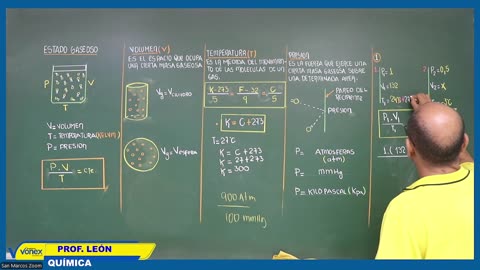 ESTADO GASEOSO
P
V
T
V= VOLUMEN
T= TEMPERATURA (KELVIN)
P= PRESION
P.V = cte.
T
VOLUMEN (V)
ES EL ESPACIO QUE OCUPA
UNA CIERTA MASA GASEOSA
Vg = V CILINDRO
Vg = V ESFERA
TEMPERATURA (T)
ES LA MEDIDA DEL MOVIMIEN
TO DE LAS MOLECULAS DE UN
GAS.
K-273 = F-32 = C
5 9 5
K = C + 273
T = 27°C
K = C + 273
K = 27 + 273
K = 300
900 Atm
100 mmHg
PRESION
ES LA FUERZA QUE EJERCE UNA
CIERTA MASA GASEOSA SOBRE
UNA DETERMINADA AREA.
PARED DEL
RECIPIENTE
PRESION
P= ATMOSFERAS
(atm)
P= mmHg
P= KILO PASCAL (Kpa)
1
P₁= 1
V₁= 132
P₁.V₁
T₁
1. (132
2
P₂= 0,5
V₂= X
VONEX
San Marcos Zoom
PROF. LEÓN
QUÍMICA